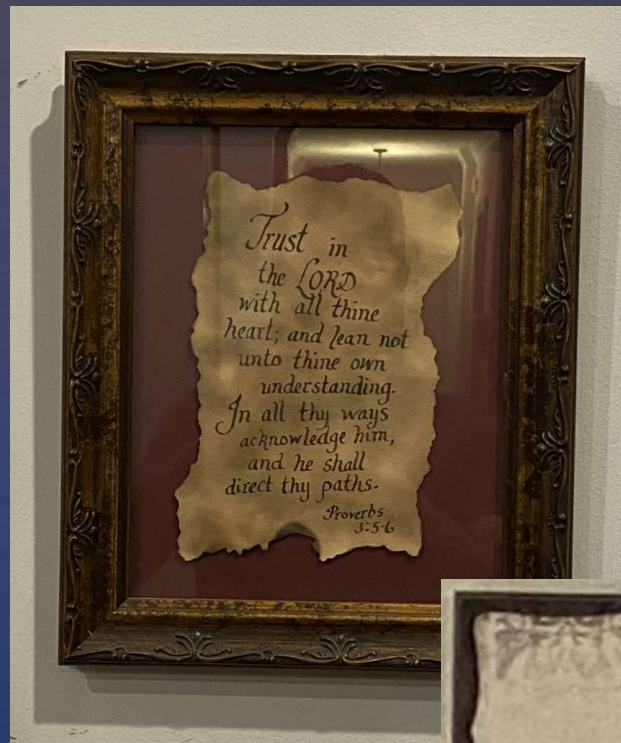 Trust in
the LORD
with all thine
heart; and lean not
unto thine own
understanding.
In all thy ways
acknowledge him,
and he shall
direct thy paths.
Proverbs
3:5-6